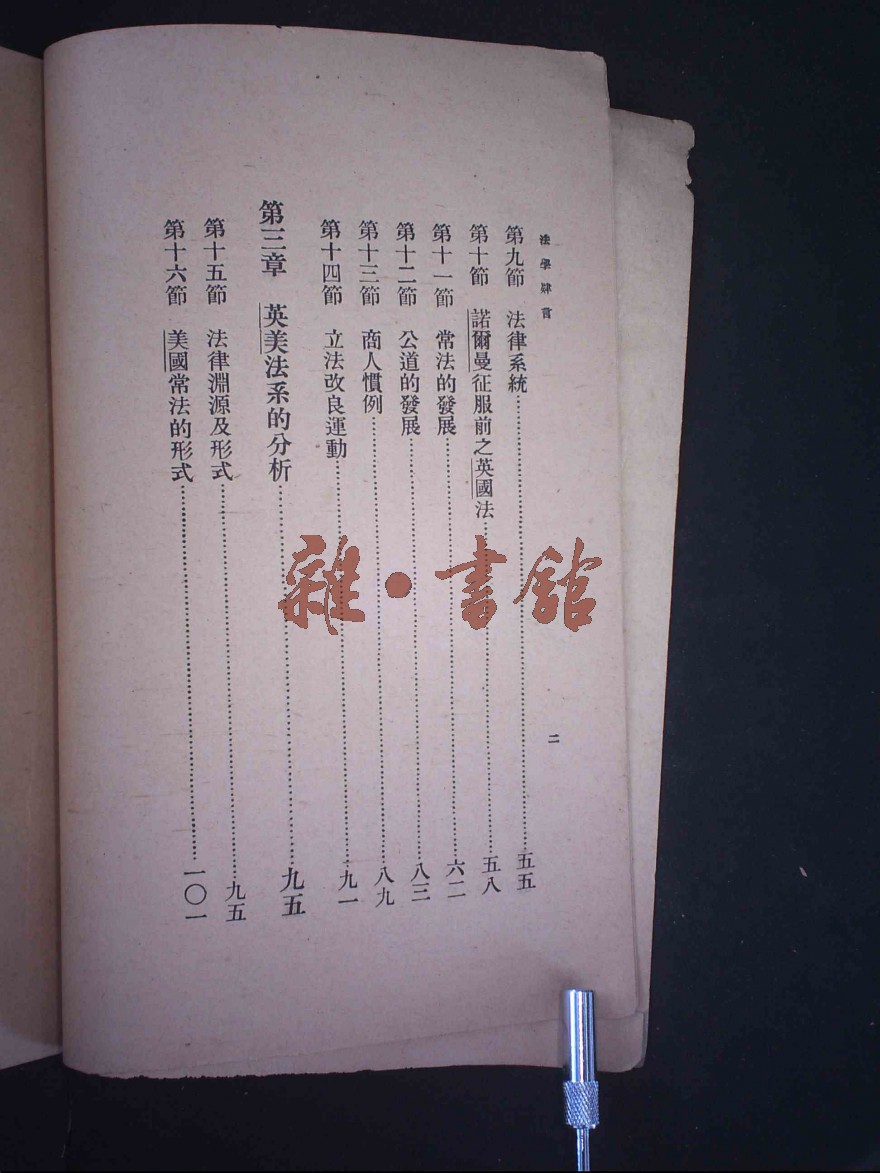 法學肄言
二
第九節　法律系統…………五五
第十節　諾爾曼征服前之英國法…………五八
第十一節　常法的發展…………六二
第十二節　公道的發展…………八三
第十三節　商人慣例…………八九
第十四節　立法改良運動…………九一
第三章　英美法系的分析…………九五
第十五節　法律淵源及形式…………九五
第十六節　美國常法的形式…………一〇一
雜·書館